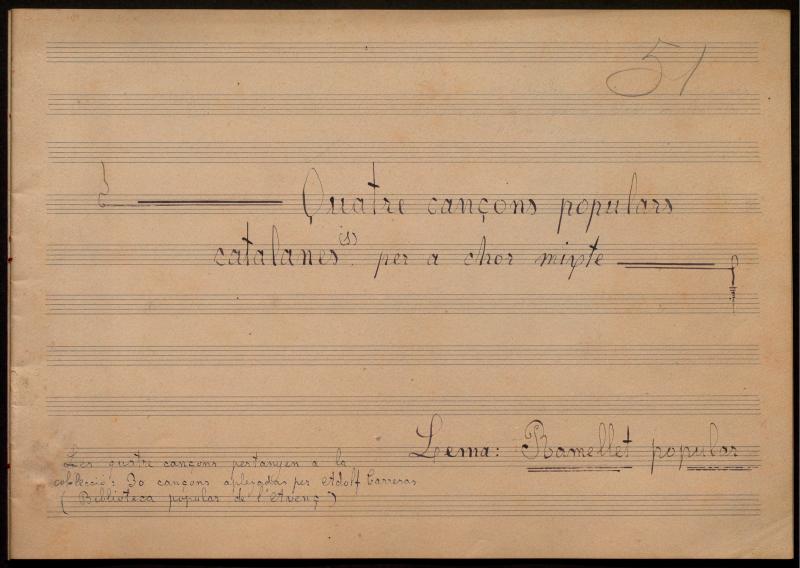 51
Quatre cançons populars
catalanes (1) per a chor mixte
Lema: Ramellet popular
Les quatre cançons pertanyen a la
col·lecció: 30 cançons aplegadas per Adolf Carreras
(Biblioteca popular de l'Avenç")